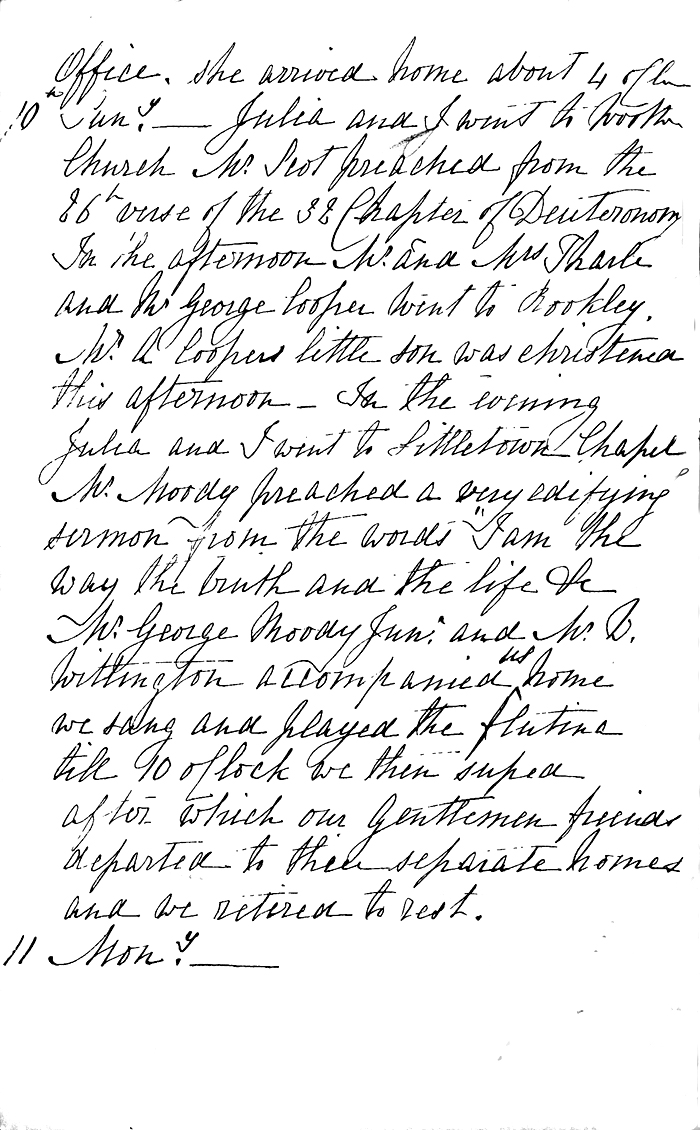 Office. she arrived home about 4 oCl
10 Sun.y — Julia and I went to
Church Mr. Scot preached from the
26th verse of the 32 Chapter of Deuteronomy
In the afternoon Mr. and Mrs Tharle
and Mr George Cooper went to Rookley.
Mr. A Coopers little son was christened
this afternoon — In the evening
Julia and I went to Littletown Chapel
Mr. Moody preached a very edifying
sermon from the words "I am the
way the truth and the life &c
Mr. George Moody Junr. and Mr.
Withington accompanied us home
we sang and played the flutina
till 10 oClock we then suped
after which our Gentlemen friends
departed to their separate homes
and we retired to rest.
11 Mon.y —